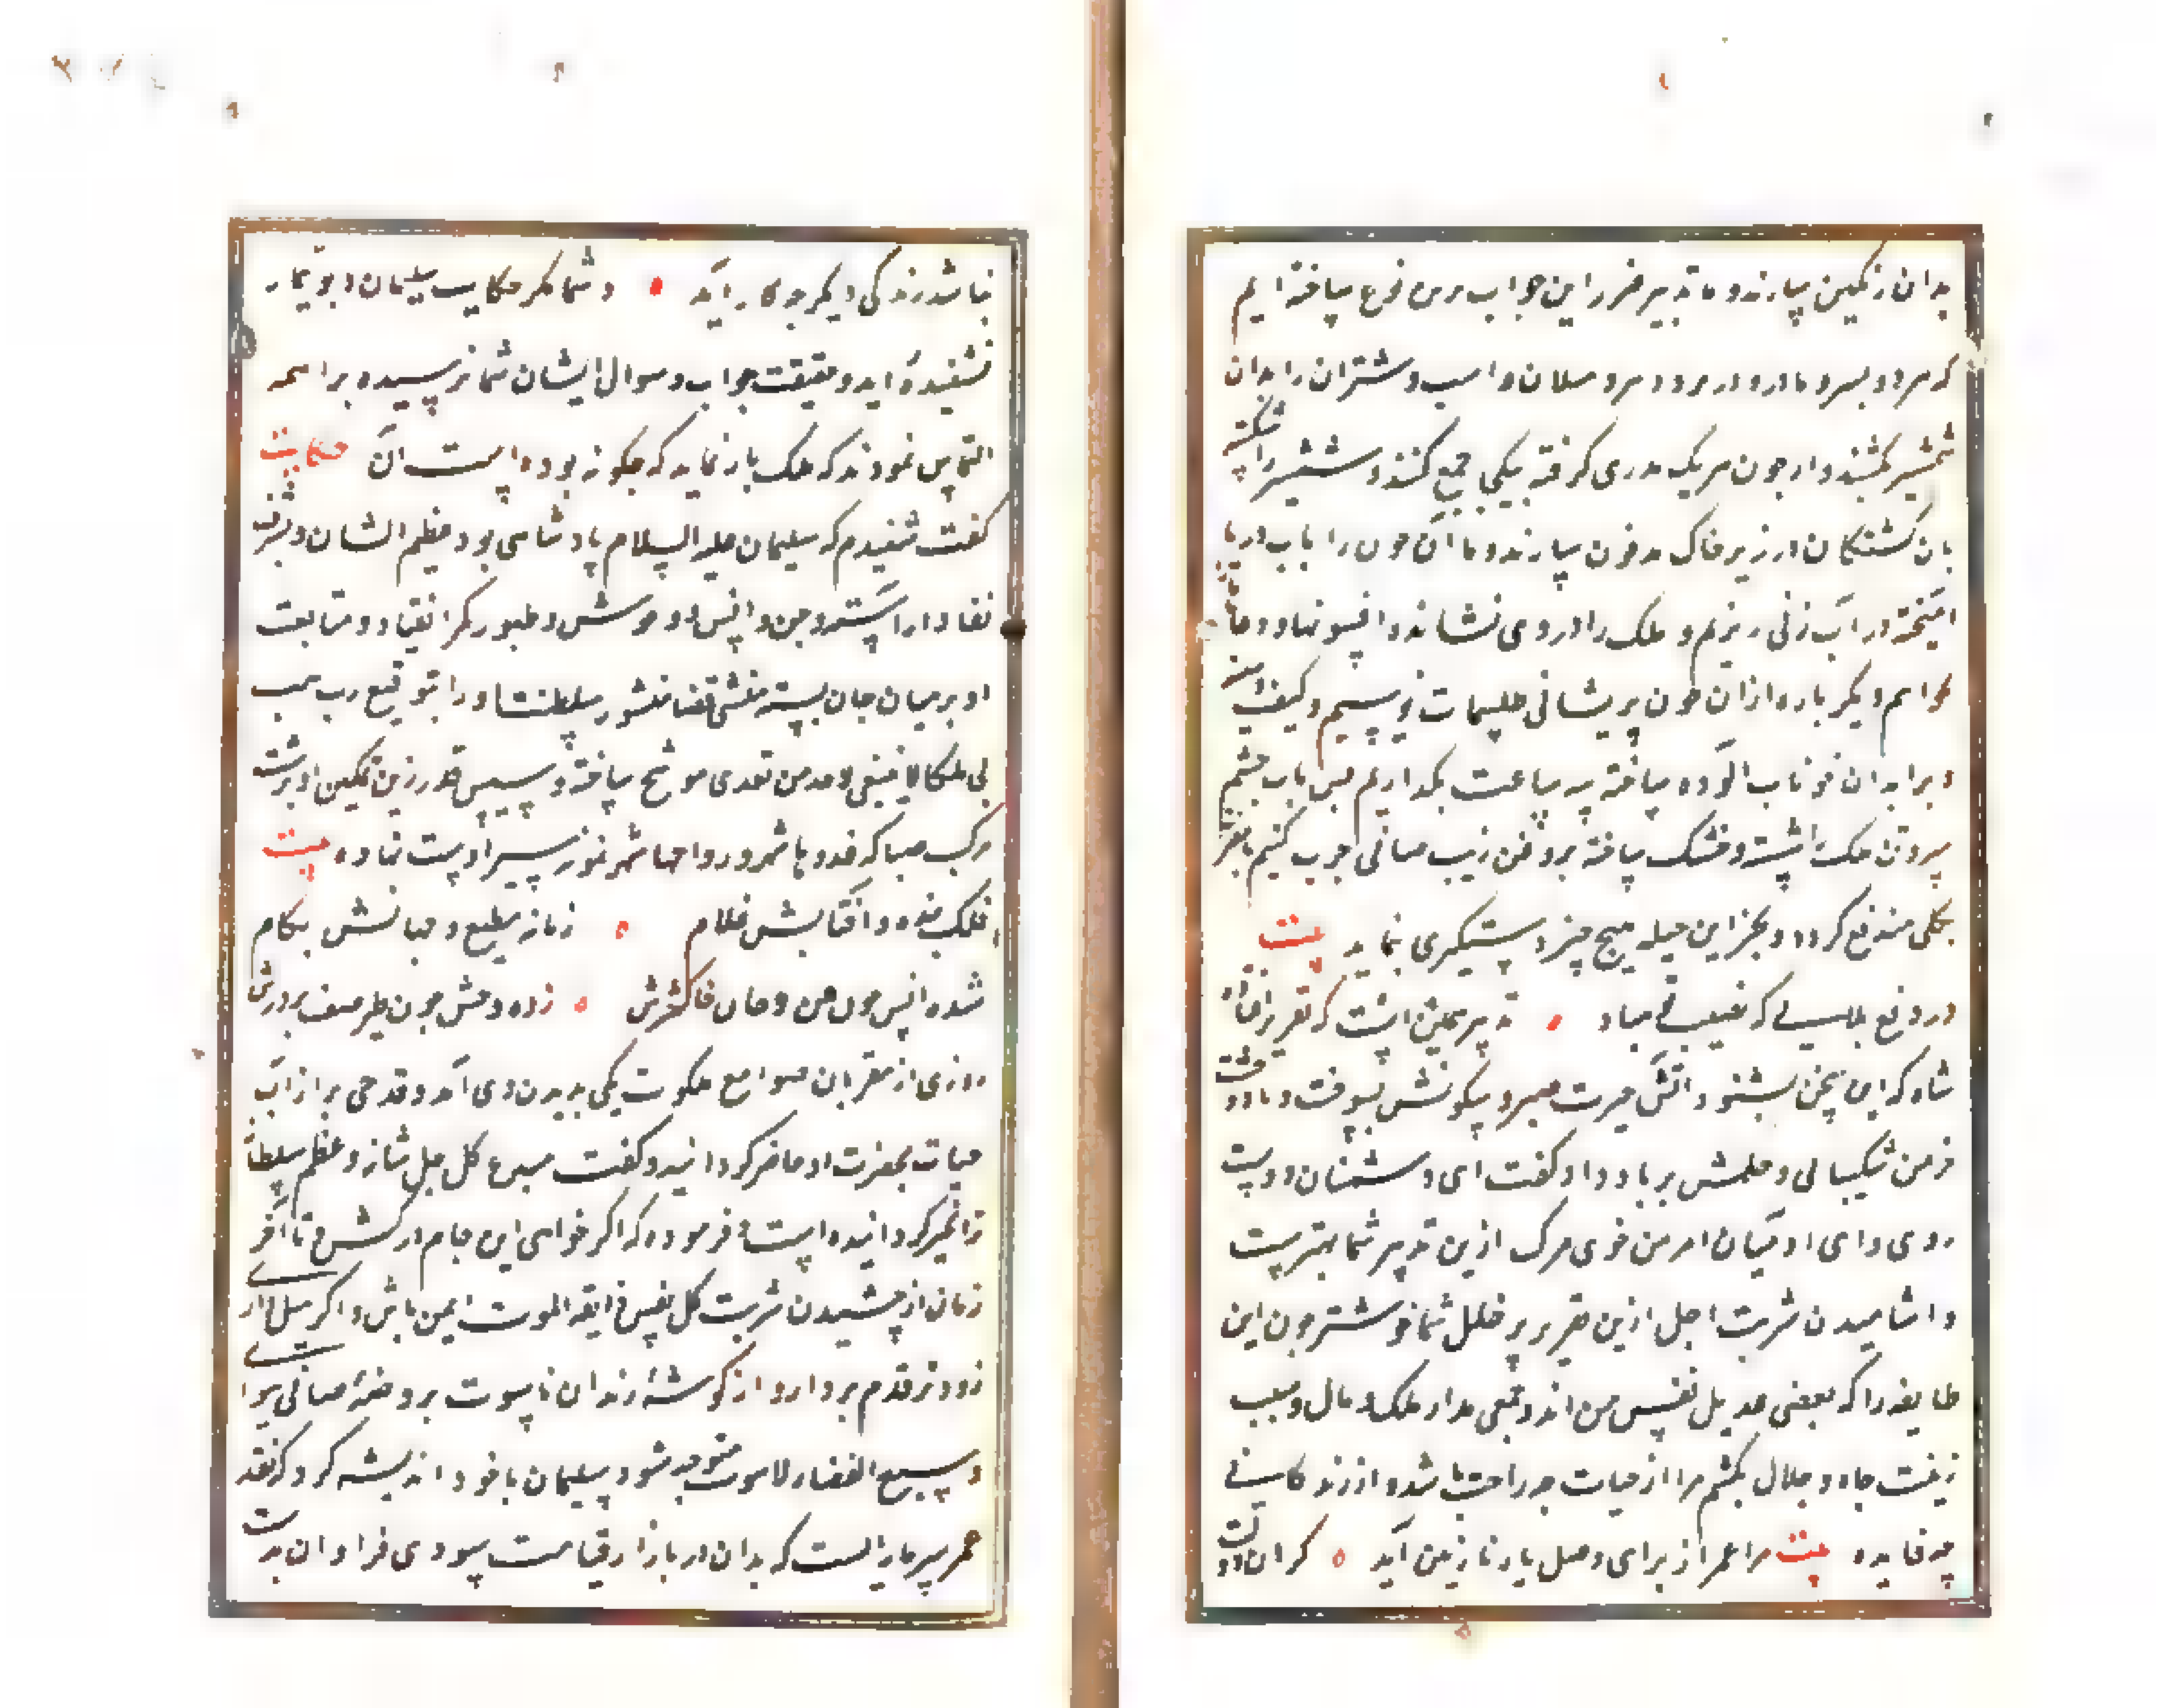 بدان رنگین سازند و ما تدبیر ضرر این جواب برین نوع ساخته ایم
که هر دو پسر و مادر و در بر و د بیر و سلان و اسب و شتران را بدان
شمشیر بکشند و از خون هر یک قدری گرفته بیکجا جمع کنند و شمشیر را شکسته
بان کشتگان در زیر خاک مدفون سازند و ما آن خون را باب دریا
آمیخته در آب زنی ریزیم و ملک را در وی نشانده افسونها و دعا
خوانیم و دیگر باره از آن خون بر پیشانی طلسمات نویسیم و کتف و سینه
و برابدان خوناب آلوده ساخته سه ساعت بگذاریم پس باب چشم
سر و تن ملک را شسته و خشک ساخته بروغن زیت صافی چرب کنیم تا مضرت
بکلی مندفع گردد و بجز این حیله هیچ چیز دستگیری ننماید بیت
در دفع بلایی که نصیب تو مباد تدبیر همین است که تقریر افتاد
شاه که این سخن بشنود آتش حیرت صبر و سکونش بسوخت و باد دهشت
خرمن شکیبائی و حلمش بر باد داد و گفت ای دشمنان دوست
روی و ای آدمیان اهرمن خوی مرگ ازین تدبیر شما بهترست
و اشامیدن شربت اجل ازین تقریر پر خلل شما خوشتر چون این
طایفه را که بعضی عدیل نفیس من اند و جمعی مدار ملک و مال و سبب
زینت جاه و جلال بکشم مرا از حیات چه راحت باشد و از زندگانی
چه فایده بیت مرا عمر از برای وصل یار نازنین آید گر آن دولت
نباشد زندگی دیگر چه کار آید و شما مگر حکایت سلیمان و بوتیمار
نشنیده اید و حقیقت جواب و سوال ایشان شما نرسیده براهمه
التماس نمودند که ملک باز نماید که چگونه بوده است آن حکایت
گفت شنیدم که سلیمان علیه السلام پادشاهی بود عظیم الشان و بشرف
نفاذ آراسته و جن و انس و وحوش و طیور کمر انقیاد و متابعت
او بر میان جان بسته منشی قضا منشور سلطنت او را بتوقیع رب هب
لی ملکا لا ینبغی لاحد من بعدی موشح ساخته و سپس قدر زین تمکین او بر پشت
مرکب صبا که غدوها شهر و رواحها شهر نموز سیر اوست نهاده بیت
فلک بنده و آفتابش غلام زمانه مطیع و جهانش بکام
شده انس چون جن و جان چاکرش زده وحش چون طیر صف بر درش
روزی از مقربان صوامع ملکوت یکی بدیدن وی آمد و قدحی پر از آب
حیات بحضرت او حاضر گردانید و گفت مبدع کل جل شانه و عظم سلطانه
ترا مخیر گردانیده است و فرموده که اگر خواهی این جام درکش و تا آخر
زمان از چشیدن شربت کل نفس ذایقة الموت ایمن باش و اگر میل داری
زودتر قدم بردار و از گوشۀ زندان ناسوت بروضۀ صافی هوای
وسیع الفضاء لاهوت متوجه شو سلیمان با خود اندیشه کرد که نقد
عمر سرمایه ایست که بدان در بازار قیامت سودی فراوان بدست